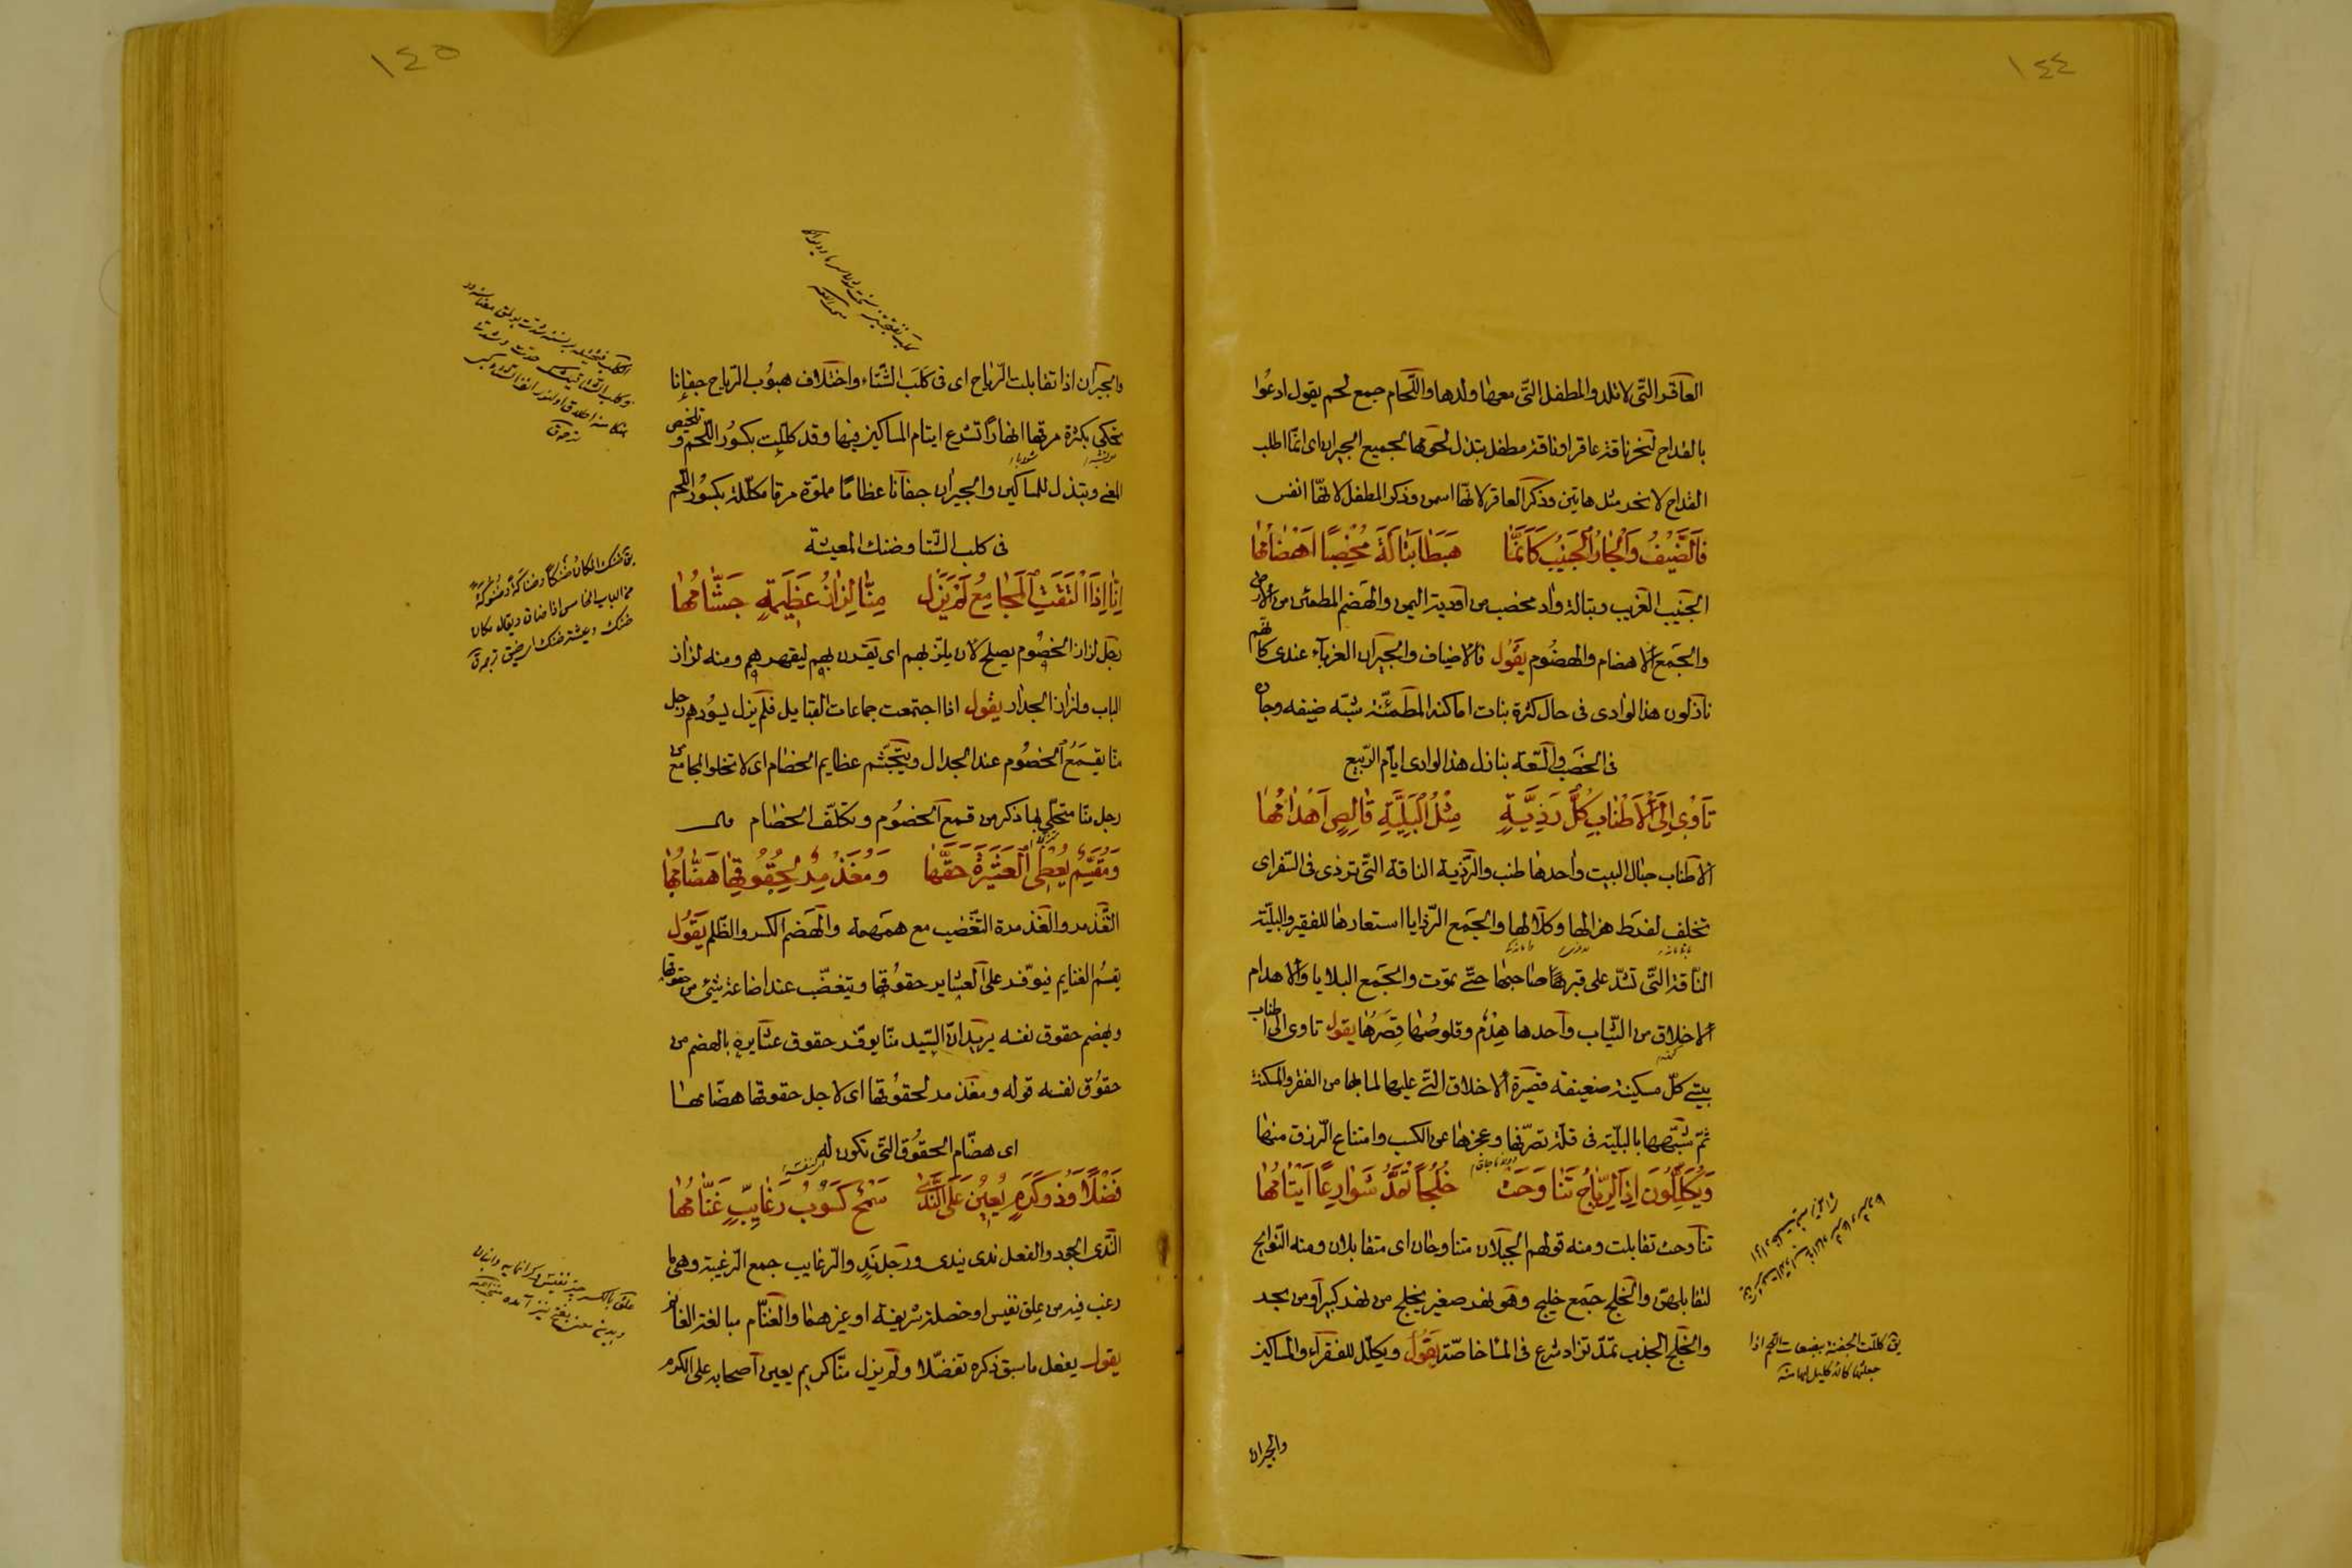 ١٤٤
العاقر التّى لا تلد والمطفل التّى معها ولدها واللّحام جمع لحم يقول ادعُوا
بالقداح لنحر ناقة عاقر او ناقة مطفل تبذل لحومها لجميع الجيران اى انّما اطلب
القداح لانحر مثل هاتين وذكر العاقر لانّها اسمن وذكر المطفل لانّها انفس
فَالضَّيْفُ وَالْجَارُ الْجَنِيْبُ كَاَنَّمَا هَبَطَا تَبَالَةَ مُخْصِبًا اَهْضَامُهَا
الجنيب الغريب وتبالة واد مخصب من اودية اليمن والهضم المطمئن من الارض
والجمع الاهضام والهضُوم يقُول فالاضياف والجيران الغرباء عندى كانّهم
نازلون هذا الوادى فى حال كثرة نبات اماكنه المطمئنّة شبّه ضيفه وجاره
فى الخصب والسّعة بنازل هذا الوادى ايّام الرّبيع
تَاْوِىْ اِلَى الْاَطْنَابِ كُلُّ رَذِيَّةٍ مِثْلُ الْبَلِيَّةِ قَالِصٍ اَهْدَامُهَا
الاطناب حبال البيت واحدها طنب والرّذية الناقة التّى ترذى فى السّفر اى
تخلف لفرط هزالها وكلالها والجمع الرّذايا استعارها للفقير والبليّة
النّاقة التّى تشدّ على قبر صاحبها حتّى تموت والجمع البلايا والاهدام
الاخلاق من الثّياب واحدها هِدْم وقلوصُها قِصَرُها يقول تاوى الى اطناب
بيتى كلّ مسكينة ضعيفة قصيرة الاخلاق التى عليها لما بها من الفقر والمسكنة
ثمّ شبّهها بالبليّة فى قلّة تصرّفها وعجزها عن الكسب وامتناع الرّزق منها
وَيُكَلِّلُوْنَ اِذَا الرِّيَاحُ تَنَاوَحَتْ خُلُجًا تُمَدُّ شَوَارِعًا اَيْتَامُهَا
تناوحت تقابلت ومنه قولهم الجبلان متناوحان اى متقابلان ومنه النّوايح
لتقابلهنّ والخلج جمع خليج وهو نهر صغير يخلج من نهر كبير او من بحر
والخلج الجذب تمدّ تزاد شرع فى الماء خاصّة يقُول ويكلّل للفقراء والمساكين
يق كلّلت الجفنة ببضعات اللّحم اذا
جعلتها كانّه كليل لها
والجيران
١٤٥
والجيران اذا تقابلت الرّياح اى فى كلَب الشّتاء واختلاف هبوُب الرّياح جفانا
تحكى بكثرة مرقها انهارًا تشرع ايتام المساكين فيها وقد كلّلت بكسُور اللّحم وتلخيص
المعنى ويبذل للمساكين والجيران جفانا عظامًا مملوّة مرقا مكلّلة بكسُور اللّحم
فى كلب الشّتا وضنك المعيشة
اِنَّا اِذَا الْتَقَتِ الْمَجَامِعُ لَمْ يَزَلْ مِنَّا لِزَازُ عَظِيْمَةٍ جَشَّامُهَا
رجل لزاز الخصُوم يصلح لان يلزّ بهم اى يقرن بهم ليقهرهم ومنه لزاز
الباب ولزاز الجدار يقول اذا اجتمعت جماعات القبايل فلم يزل يسُودهم رجل
منّا يقمعُ الخصُوم عند الجدال ويتجشّم عظايم الخصام اى لا تخلو المجامع من
رجل منّا متحلّى بما ذكر من قمع الخصُوم وتكلّف الخصام
وَمُقَسِّمٌ يُعْطِى الْعَشِيْرَةَ حَقَّهَا وَمُغَذْمِرٌ لِحُقُوْقِهَا هَضَّامُهَا
التّغذمر والغذمرة التّغضّب مع همهمة والهضم الكسر والظّلم يقُول
يقسُم الغنايم فيوّفر على العشاير حقوُقها ويتغضّب عند اضاعة شئ من حقوقها
وبهضم حقوق نفسه يريد انّ السّيد منّا يوفّر حقوق عشايره بالهضم من
حقوُق نفسه قوله ومغذمر لحقوُقها اى لاجل حقوقها هضّامها
اى هضّام الحقوُق التّى تكون له
فَضْلًا وَذُوْكَرَمٍ يُعِيْنُ عَلَى النَّدَى سَمْحٌ كَسُوْبُ رَغَايِبٍ غَنَّامُهَا
النّدى الجود والفعل ندى يندى ورجل ندٍ والرّغايب جمع الرّغيبة وهى ما
رغب فيه من عِلق نفيس او خصلة شريفة او غيرهما والغنّام مبالغة الغانم
يقول يفعل ما سبق ذكره تفضّلا ولم يزل منّا كريم يعين اصحابه على الكرم